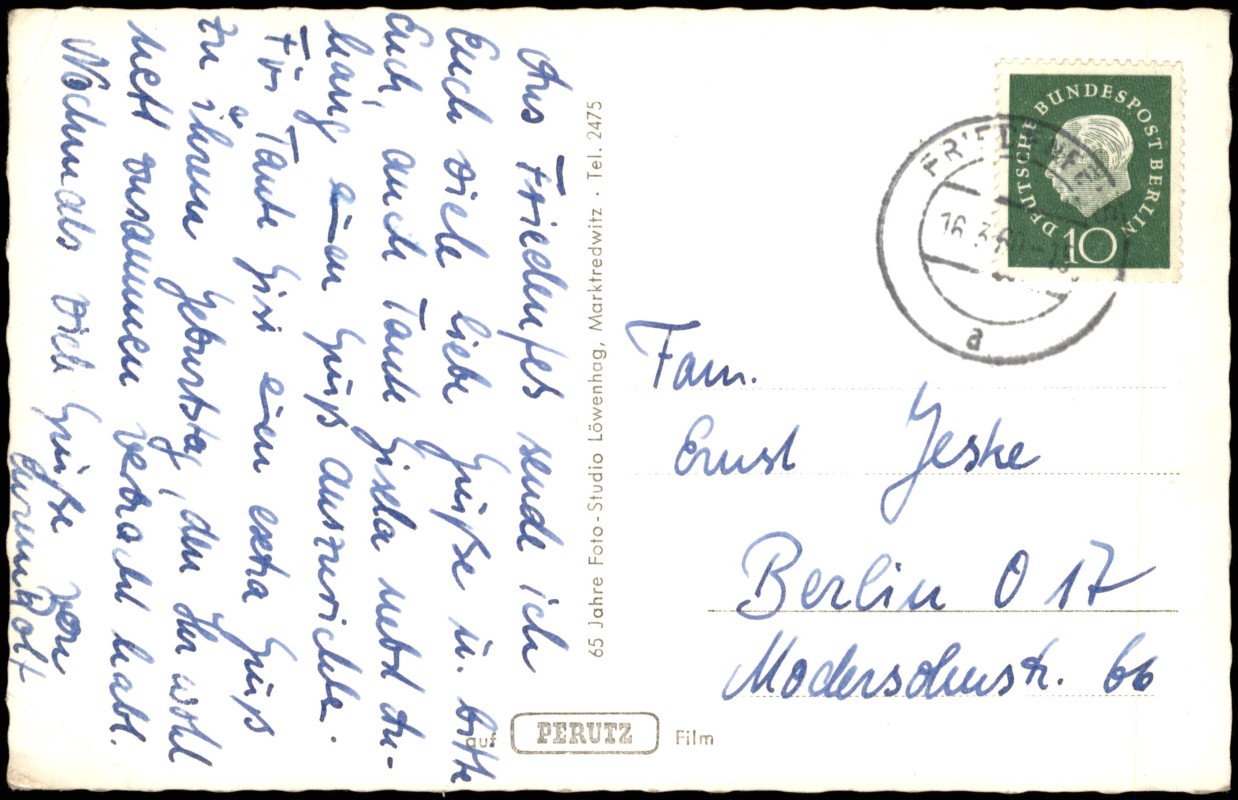 Aus Friedenfels sende ich
Euch viele liebe Grüße u. bitte
Euch, auch Tante Gisela nebst An-
hang einen Gruß auszurichten.
Für Tante Gisi einen extra Gruß
zu ihrem Geburtstag, den Ihr wohl
nett zusammen verbracht habt.
Nochmals viele Grüße von
Eurem Rolf
65 Jahre Foto-Studio Löwenhag, Marktredwitz · Tel. 2475
auf PERUTZ Film
DEUTSCHE BUNDESPOST BERLIN
10
16.3.
a
Fam.
Ernst Jeske
Berlin O 17
Modersohnstr. 66